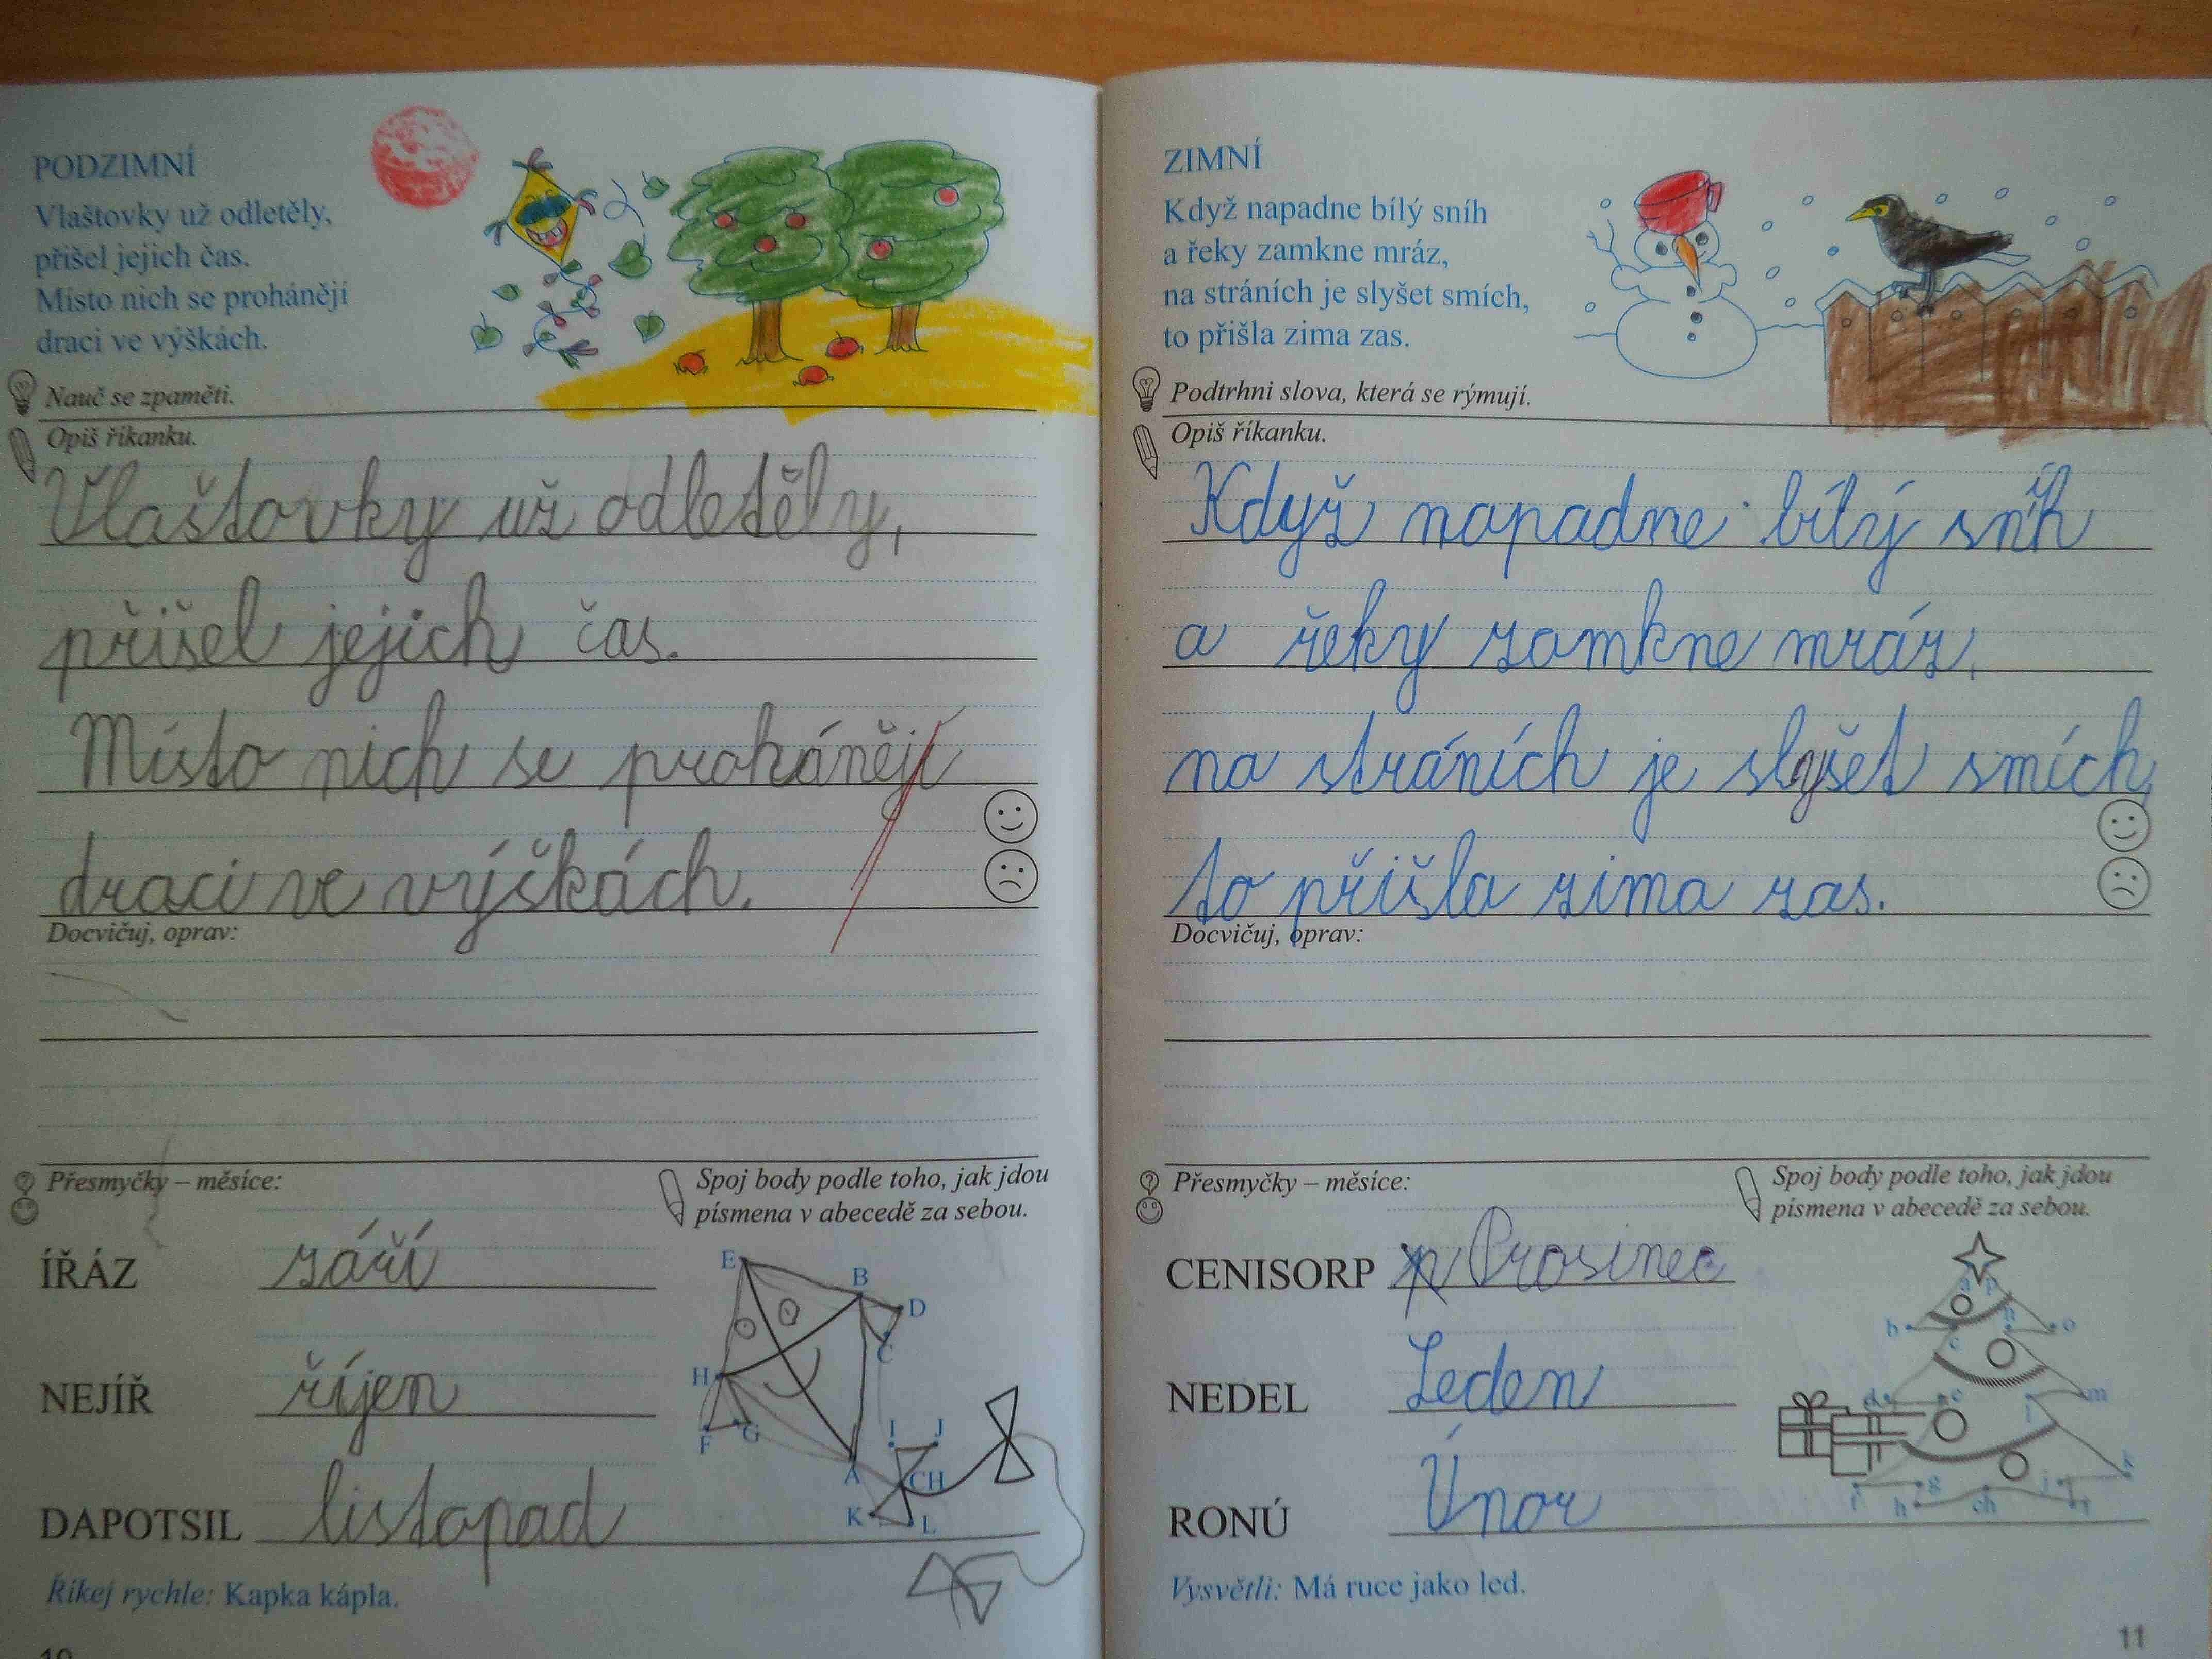 PODZIMNÍ
Vlaštovky už odletěly,
přišel jejich čas.
Místo nich se prohánějí
draci ve výškách.
Nauč se zpaměti.
Opiš říkanku.
Vlaštovky už odletěly,
přišel jejich čas.
Místo nich se prohánějí
draci ve výškách.
Docvičuj, oprav:
Přesmyčky – měsíce:
Spoj body podle toho, jak jdou
písmena v abecedě za sebou.
ÍŘÁZ září
NEJÍŘ říjen
DAPOTSIL listopad
E
B
D
C
H
F
G
A
I
J
CH
K
L
Říkej rychle: Kapka kápla.
10
ZIMNÍ
Když napadne bílý sníh
a řeky zamkne mráz,
na stráních je slyšet smích,
to přišla zima zas.
Podtrhni slova, která se rýmují.
Opiš říkanku.
Když napadne bílý sníh
a řeky zamkne mráz,
na stráních je slyšet smích,
to přišla zima zas.
Docvičuj, oprav:
Přesmyčky – měsíce:
Spoj body podle toho, jak jdou
písmena v abecedě za sebou.
CENISORP Prosinec
NEDEL Leden
RONÚ Únor
a p
b c n o
d e l m
f g k
h ch j
Vysvětli: Má ruce jako led.
11